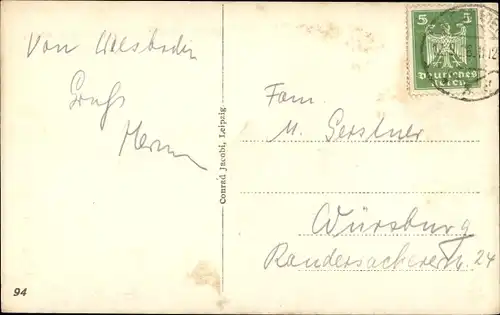 Von Wiesbaden
Gruß
Herm
5 5
Deutsches
Reich
Fam.
M. Gerstner
Würzburg
Randersackererstr. 24
Conrad Jacobi, Leipzig
94